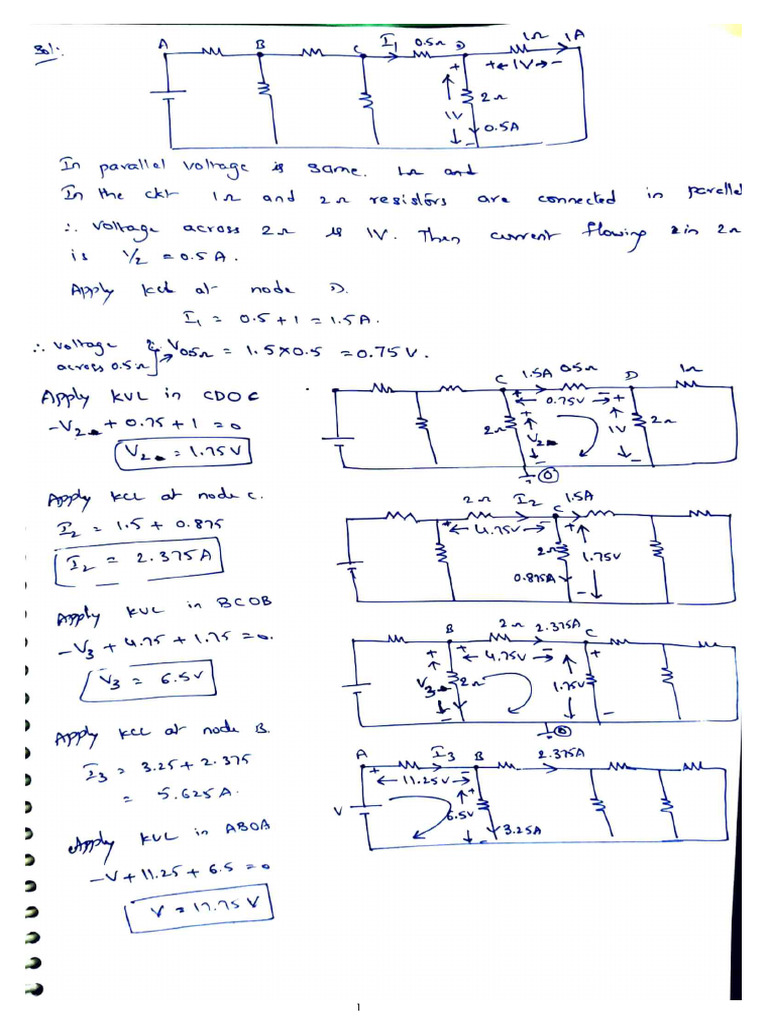 Sol:.
A B C I₁ 0.5Ω D 1Ω 1A
+ ←1V→ -
+ 1V - 2Ω
0.5A
In parallel voltage is same. 1Ω and
In the ckt 1Ω and 2Ω resistors are connected in parallel
∴ Voltage across 2Ω is 1V. Then current flowing in 2Ω
is 1/2 = 0.5A.
Apply kcl at node D.
I₁ = 0.5+1 = 1.5A.
∴ Voltage across 0.5Ω } → V0.5Ω = 1.5×0.5 = 0.75V.
Apply KVL in CDOC
-V₂ + 0.75 + 1 = 0
V₂ = 1.75V
C 1.5A 0.5Ω D 1Ω
+ ← 0.75V → - +
2Ω + V₂ - 1V - 2Ω
0
Apply KCL at node C.
I₂ = 1.5 + 0.875
I₂ = 2.375A
2Ω I₂ C 1.5A
+ ← 4.75V → - +
2Ω 1.75V
0.875A -
Apply KVL in BCOB
-V₃ + 4.75 + 1.75 = 0.
V₃ = 6.5V
B 2Ω 2.375A C
+ + ← 4.75V → - +
V₃ 2Ω 1.75V
- -
0
Apply KCL at node B.
I₃ = 3.25 + 2.375
= 5.625A.
A I₃ B 2.375A
+ ← 11.25V → - +
V 6.5V
- 3.25A
Apply KVL in ABOA
-V + 11.25 + 6.5 = 0
V = 17.75 V
1